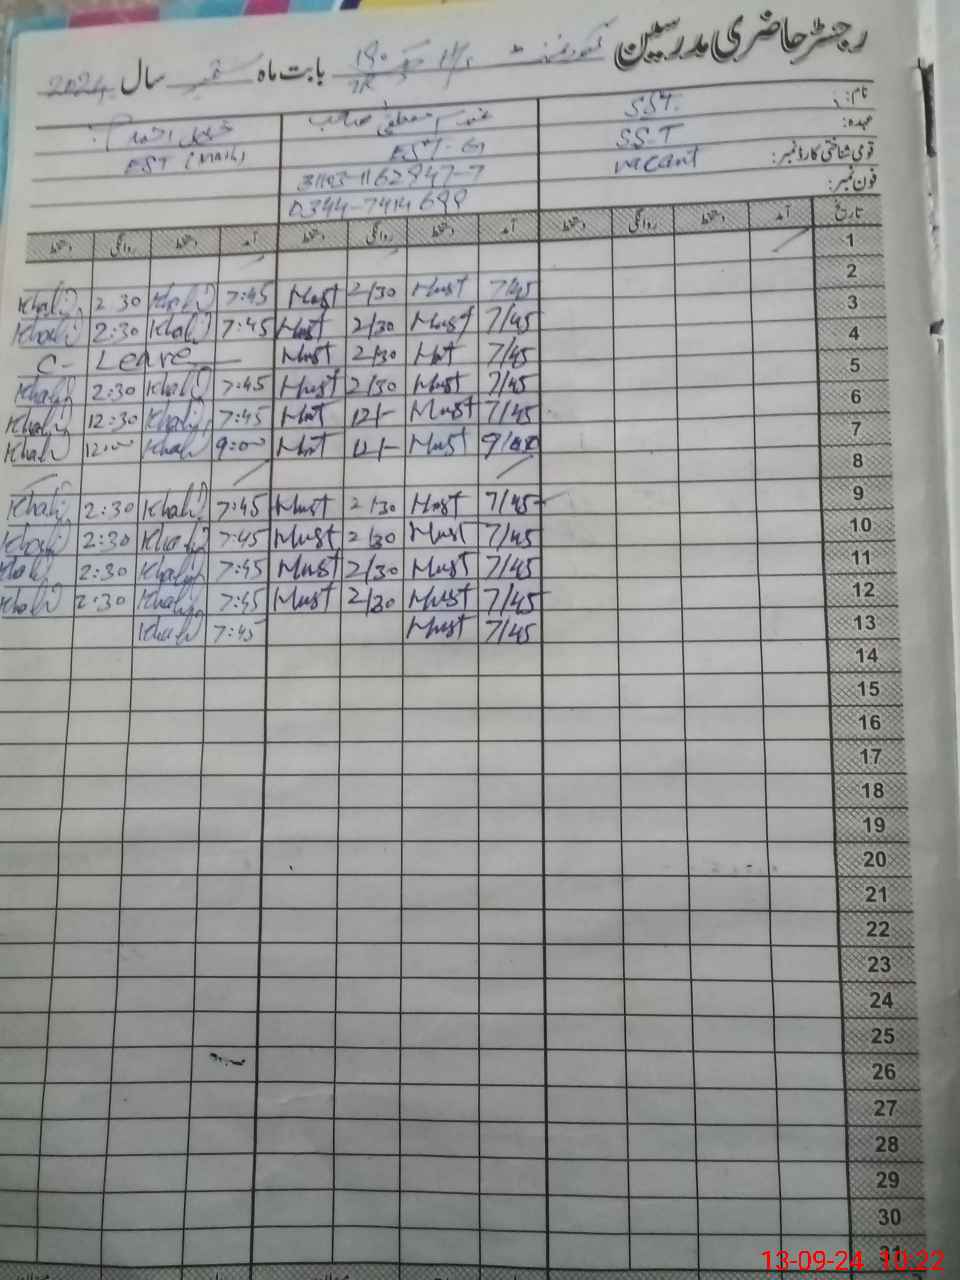 رجسٹر حاضری مدرسین گورنمنٹ بابت ماہ ستمبر سال 2024
نام: SST.
عہدہ: SST EST-G EST (Math)
قومی شناختی کارڈ نمبر: vacant
فون نمبر: 0344-7414688
تاریخ آمد دستخط روانگی دستخط آمد دستخط روانگی دستخط آمد دستخط روانگی دستخط
1
2 7/45 Must 2/30 Must 7:45 Khalil 2:30 Khalil
3 7/45 Must 2/30 Must 7:45 Khalil 2:30 Khalil
4 7/45 Must 2/30 Must C- Leave
5 7/45 Must 2/30 Must 7:45 Khalil 2:30 Khalil
6 7/45 Must 12/- Must 7:45 Khalil 12:30 Khalil
7 9/00 Must 12/- Must 9:00 Khalil 12:00 Khalil
8
9 7/45 Must 2/30 Must 7:45 Khalil 2:30 Khalil
10 7/45 Must 2/30 Must 7:45 Khalil 2:30 Khalil
11 7/45 Must 2/30 Must 7:45 Khalil 2:30 Khalil
12 7/45 Must 2/30 Must 7:45 Khalil 2:30 Khalil
13 7/45 Must 7:45 Khalil
14
15
16
17
18
19
20
21
22
23
24
25
26
27
28
29
30
31
13-09-24 10:22